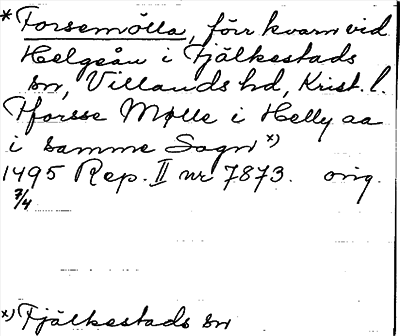 * Forsemölla, förr kvarn vid
Helgeån i Fjälkestads
sn, Villands hd, Krist. l.
Fforsse Mølle i Helly aa
i samme Sogn x)
1495 Rep. II nr 7873. orig.
7/4
x) Fjälkestads sn